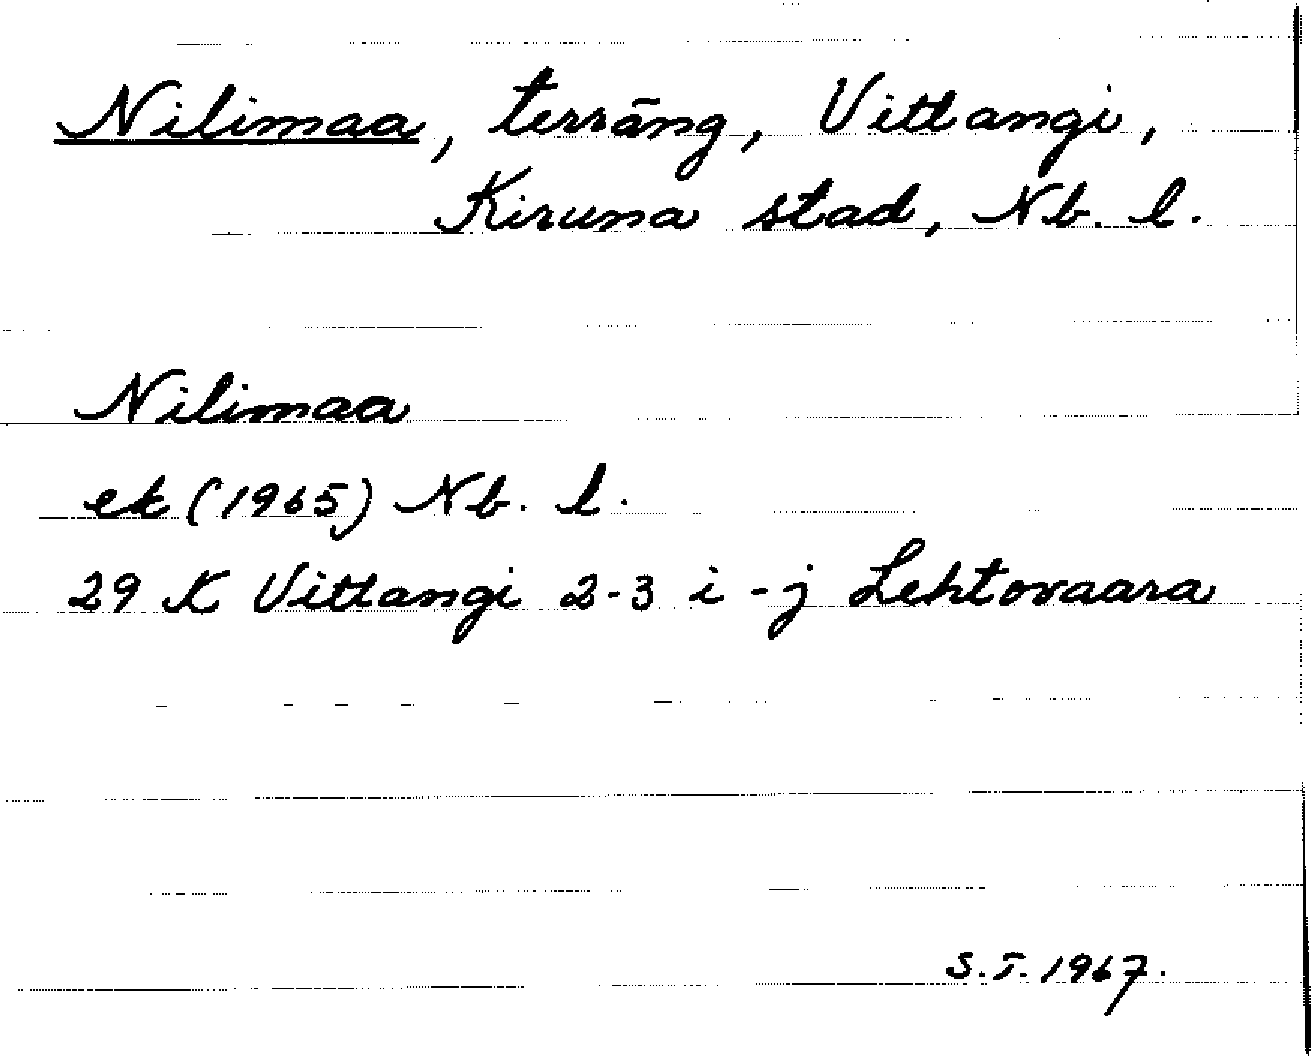 Nilimaa, terräng, Vittangi,
Kiruna stad, Nb. l.
Nilimaa
ek (1965) Nb. l.
29 K Vittangi 2-3 i-j Lehtovaara
S.T. 1967.